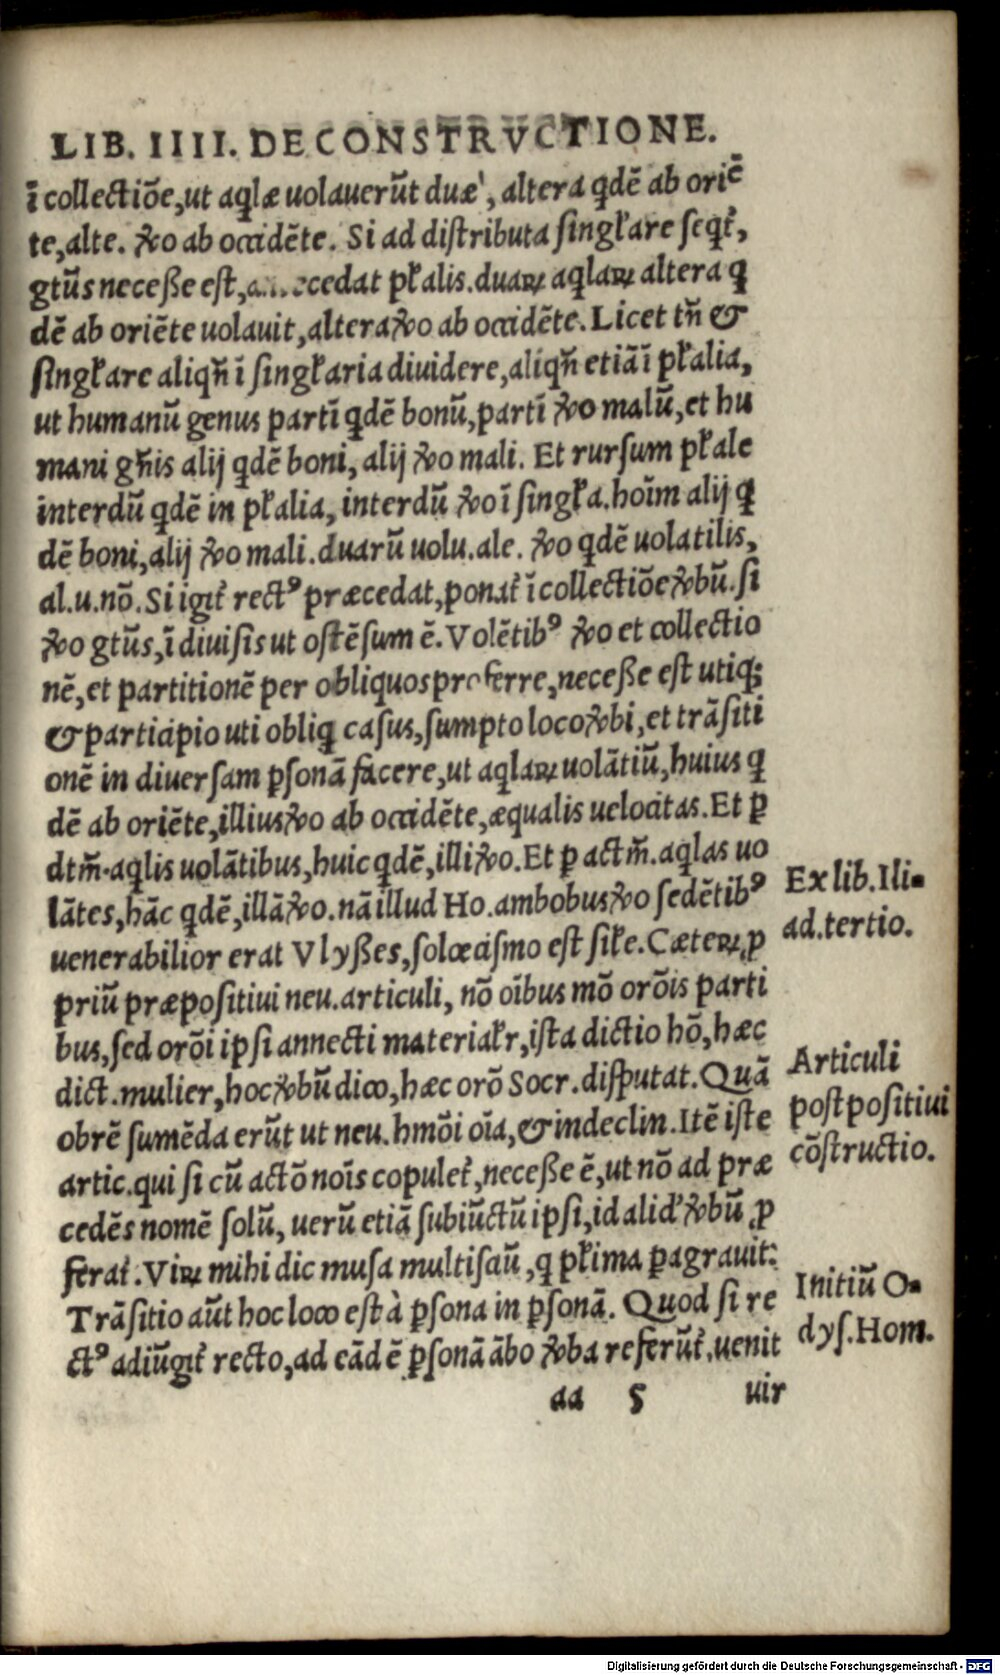 LIB. IIII. DE CONSTRVCTIONE.
ī collectiõe, ut aqlæ uolauerũt duæ, altera qdē ab oriē
te, alte. ꝟo ab occidēte. Si ad distributa singƚare seqt̃,
gtũs necesse est, cedat pƚalis. duaꝝ aqlaꝝ altera q
dē ab oriēte uolauit, altera ꝟo ab occidēte. Licet tñ &
singƚare aliqñ ī singƚaria diuidere, aliqñ etiã ī pƚalia,
ut humanũ genus partī qdē bonũ, partī ꝟo malũ, et hu
mani gñis alij qdē boni, alij ꝟo mali. Et rursum pƚale
interdũ qdē in pƚalia, interdũ ꝟo ī singƚa. hoīm alij q
dē boni, alij ꝟo mali. duarũ uolu. ale. ꝟo qdē uolatilis,
al. u. nõ. Si igit̃ rectꝰ præcedat, ponat̃ ī collectiõe ꝟbũ. si
ꝟo gtũs, ī diuisis ut ostēsum ē. Volētibꝰ ꝟo et collectio
nē, et partitionē per obliquos proferre, necesse est utiqꝫ
& participio uti obliq casus, sumpto loco ꝟbi, et trãsiti
onē in diuersam ꝑsonã facere, ut aqlaꝝ uolãtiũ, huius q
dē ab oriēte, illius ꝟo ab occidēte, æqualis uelocitas. Et ꝑ
dtm̃. aqlis uolãtibus, huic qdē, illi ꝟo. Et ꝑ actm̃. aqlas uo
lãtes, hãc qdē, illã ꝟo. nã illud Ho. ambobus ꝟo sedētibꝰ
uenerabilior erat Vlysses, solœcismo est siƚe. Cæteꝝ, ꝓ
priũ præpositiui neu. articuli, nõ oĩbus mõ orõis parti
bus, sed orõi ipsi annecti materialr, ista dictio hõ, hæc
dict. mulier, hoc ꝟbũ dico, hæc orõ Socr. disputat. Quã
obrē sumēda erũt ut neu. hmõi oĩa, & indeclin. Itē iste
artic. qui si cũ actõ noĩs copulet̃, necesse ē, ut nõ ad præ
cedēs nomē solũ, uerũ etiã subiũctũ ipsi, id aliđ ꝟbũ, ꝓ
ferat̃. Viꝝ mihi dic musa multisciũ, q pƚima ꝑagrauit:
Trãsitio aũt hoc loco est à ꝑsona in ꝑsonã. Quod si re
ctꝰ adiũgit̃ recto, ad eãdē ꝑsonã ãbo ꝟba referũt̃, uenit
aa 5 uir
Ex lib. Ili-
ad. tertio.
Articuli
postpositiui
cõstructio.
Initiũ O-
dys. Hom.
Digitalisierung gefördert durch die Deutsche Forschungsgemeinschaft - DFG